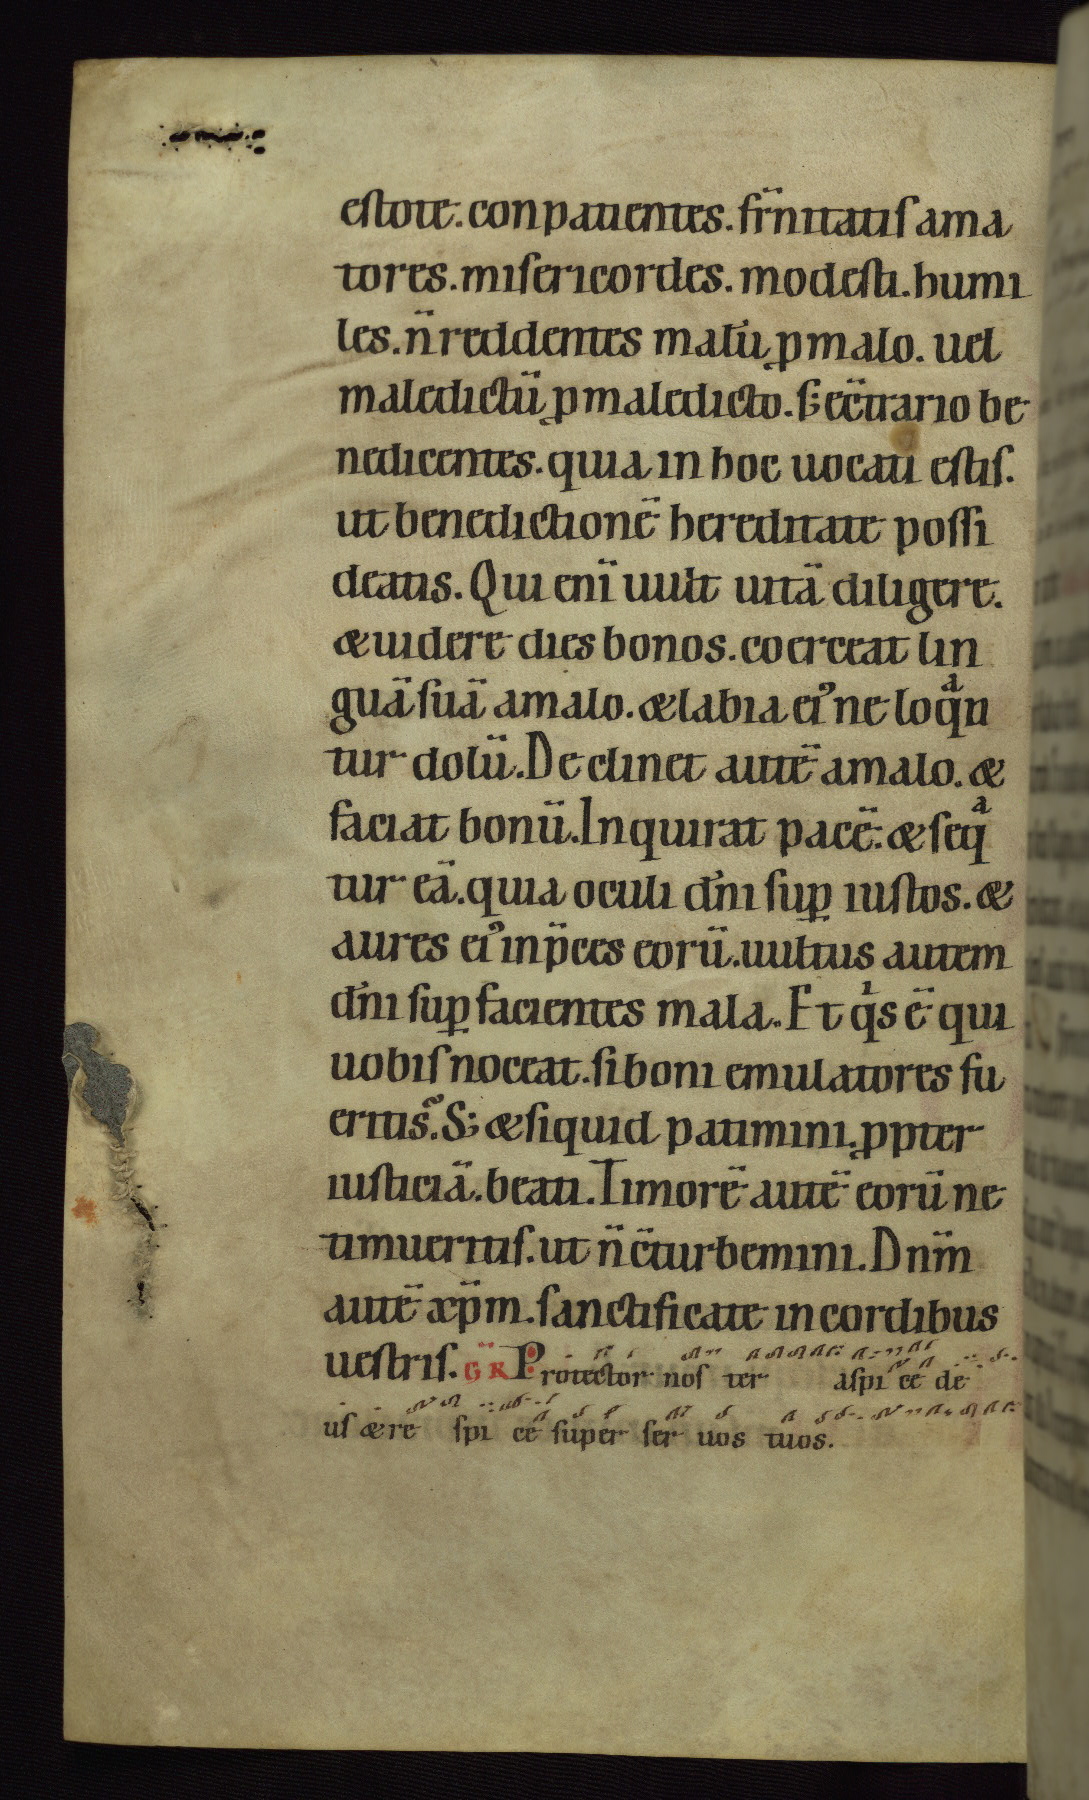 estote. conpatientes. fr̄nitatis ama
tores. misericordes. modesti. humi
les. n̄ reddentes malū p malo. uel
maledictū p maledicto. s; ec̄trario be
nedicentes. quia in hoc uocati estis.
ut benedictionē hereditate possi
deatis. Qui enī uult uitā diligere.
& uidere dies bonos. coerceat lin
guā suā a malo. & labia ei' ne loqͣn
tur dolū. Declinet autē a malo. &
faciat bonū. Inquirat pacē. & seqͣ
tur eā. quia oculi dn̄i sup̱ iustos. &
aures ei' in p̄ces eorū. uultus autem
dn̄i sup̱ facientes mala. Et qⁱs ē qui
uobis noceat. si boni emulatores fu
eritis. S; & si quid patimini ppter
iusticiā. beati. Timorē autē eorū ne
timueritis. ut n̄ c̄turbemini. Dn̄m
autē xp̄m. sanctificate in cordibus
uestris. GR Protector nos ter aspi ce de
us & re spi ce super ser uos tuos.